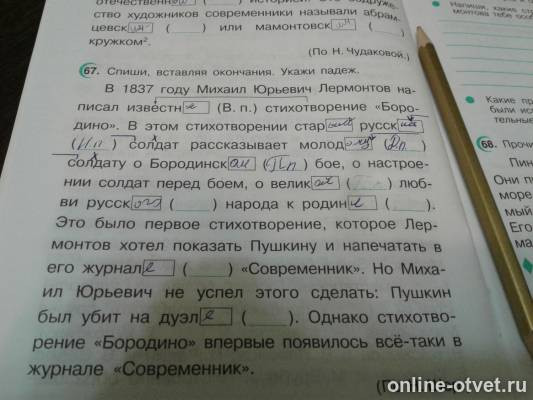 отечественн
ство художников современники называли абрам-
цевск ( ) или мамонтовск ( )
кружком².
(По Н. Чудаковой.)
67. Спиши, вставляя окончания. Укажи падеж.
В 1837 году Михаил Юрьевич Лермонтов на-
писал известн е (В. п.) стихотворение «Боро-
дино». В этом стихотворении стар русск
(Ип) солдат рассказывает молод (Рп)
солдату о Бородинск ом (Пп) бое, о настрое-
нии солдат перед боем, о велик ( ) люб-
ви русск ого ( ) народа к родин е ( ).
Это было первое стихотворение, которое Лер-
монтов хотел показать Пушкину и напечатать в
его журнал е ( ) «Современник». Но Миха-
ил Юрьевич не успел этого сделать: Пушкин
был убит на дуэл е ( ). Однако стихотво-
рение «Бородино» впервые появилось всё-таки в
журнале «Современник».
Напиши, какие
монтова тебе
Какие
были
тельные
68. Прочи
Пин
Они п
море
мый
Его
ма
online-otvet.ru